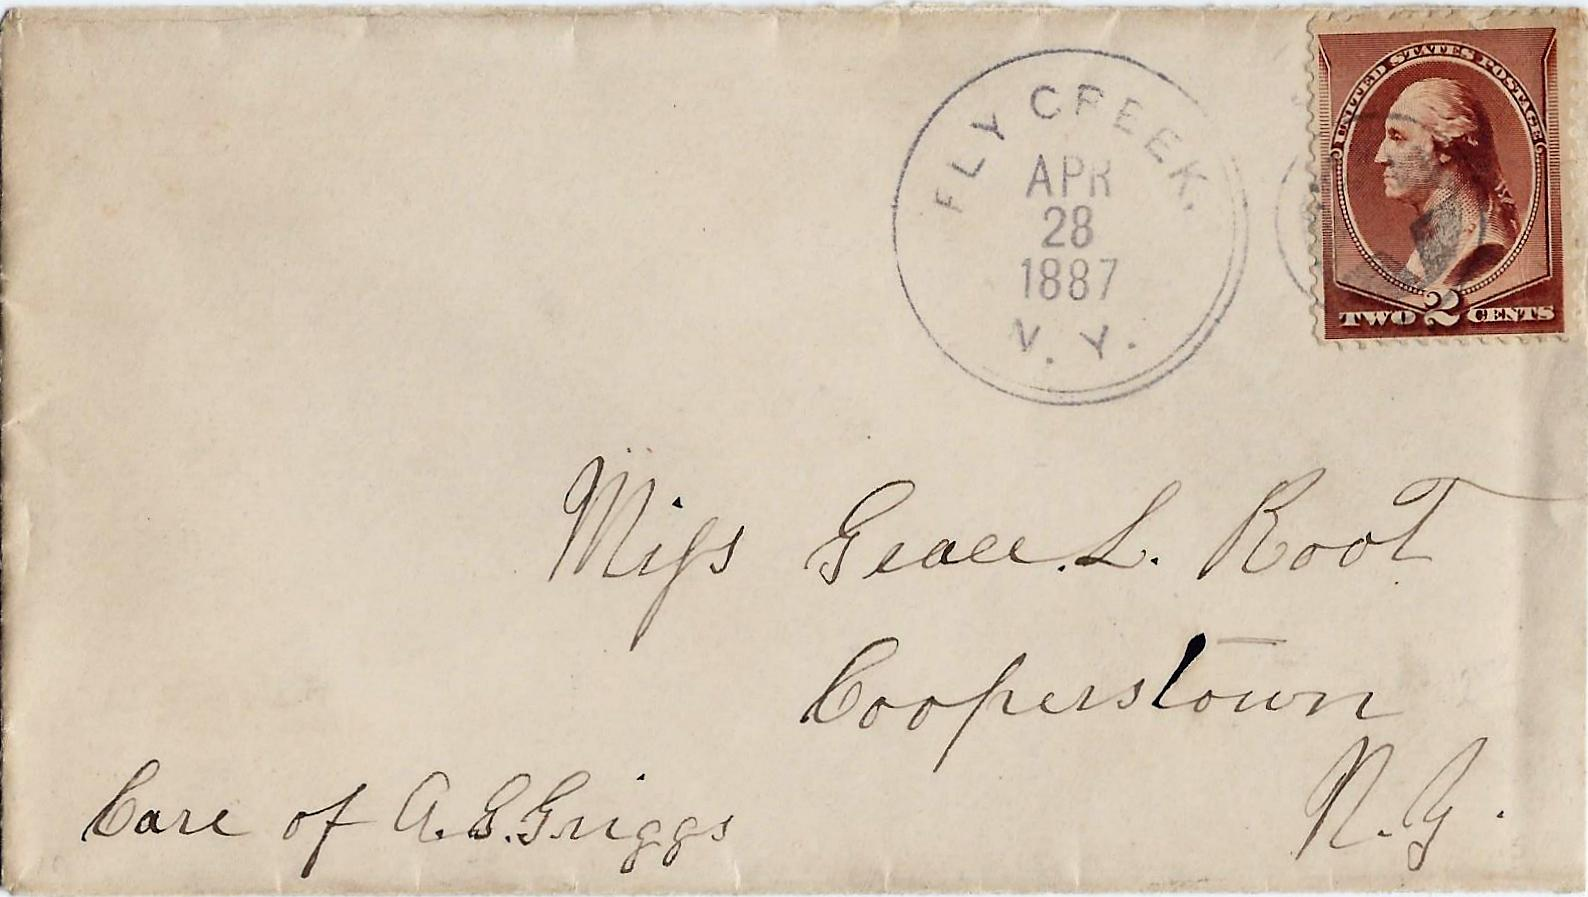 FLY CREEK.
APR
28
1887
N. Y.
UNITED STATES POSTAGE
TWO 2 CENTS
Miss Grace. L. Root
Cooperstown
N. Y.
Care of A. G. Griggs